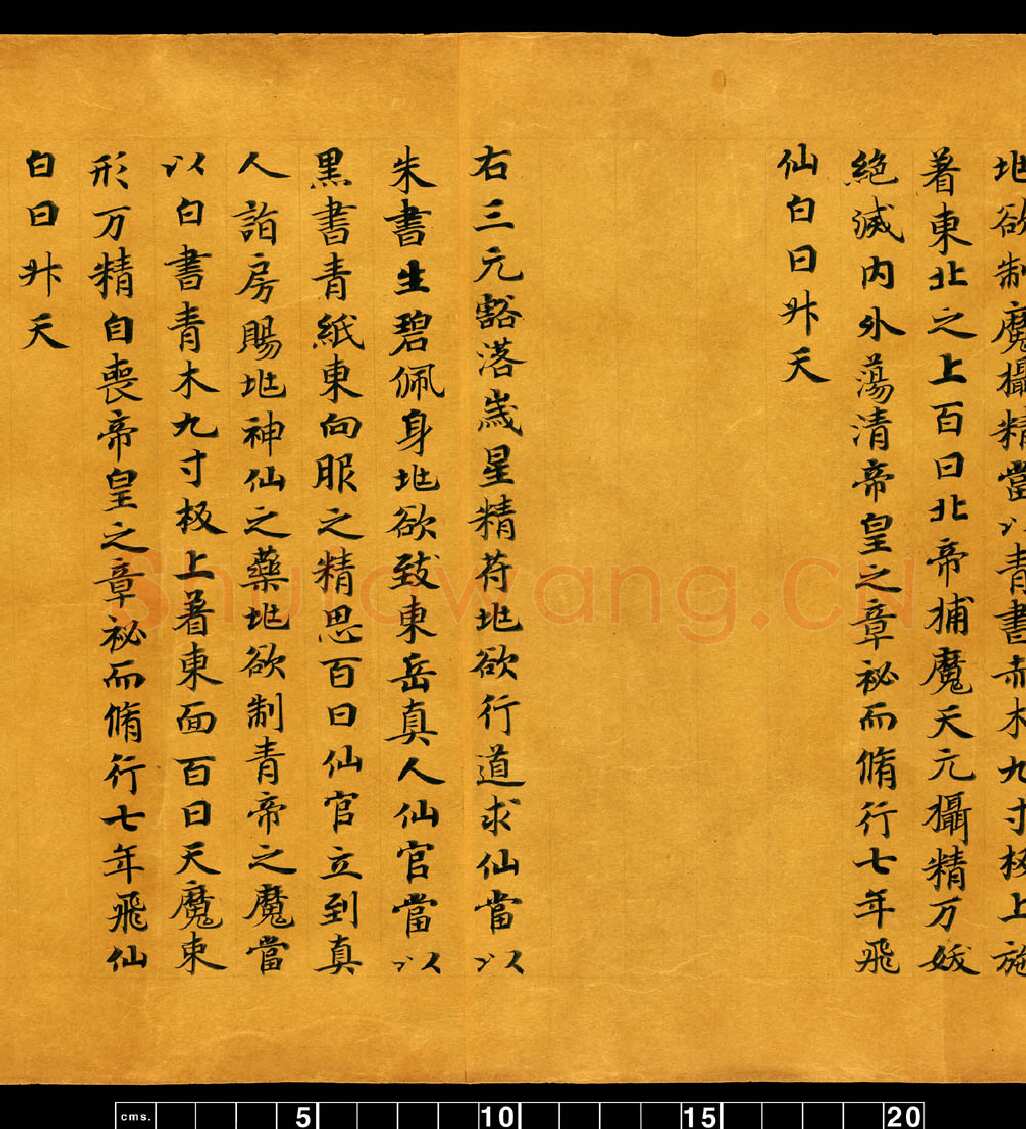 地欲制魔攝精當以青書赤木九寸板上施
著東北之上百日北帝捕魔天元攝精万妖
絕滅內外蕩清帝皇之章祕而脩行七年飛
仙白日升天
右三元豁落歲星精苻地欲行道求仙當以
朱書生碧佩身地欲致東岳真人仙官當以
黑書青紙東向服之精思百日仙官立到真
人詣房賜地神仙之藥地欲制青帝之魔當
以白書青木九寸板上著東面百日天魔束
形万精自喪帝皇之章祕而脩行七年飛仙
白日升天
Shufawang.CN
cms. 5 10 15 20